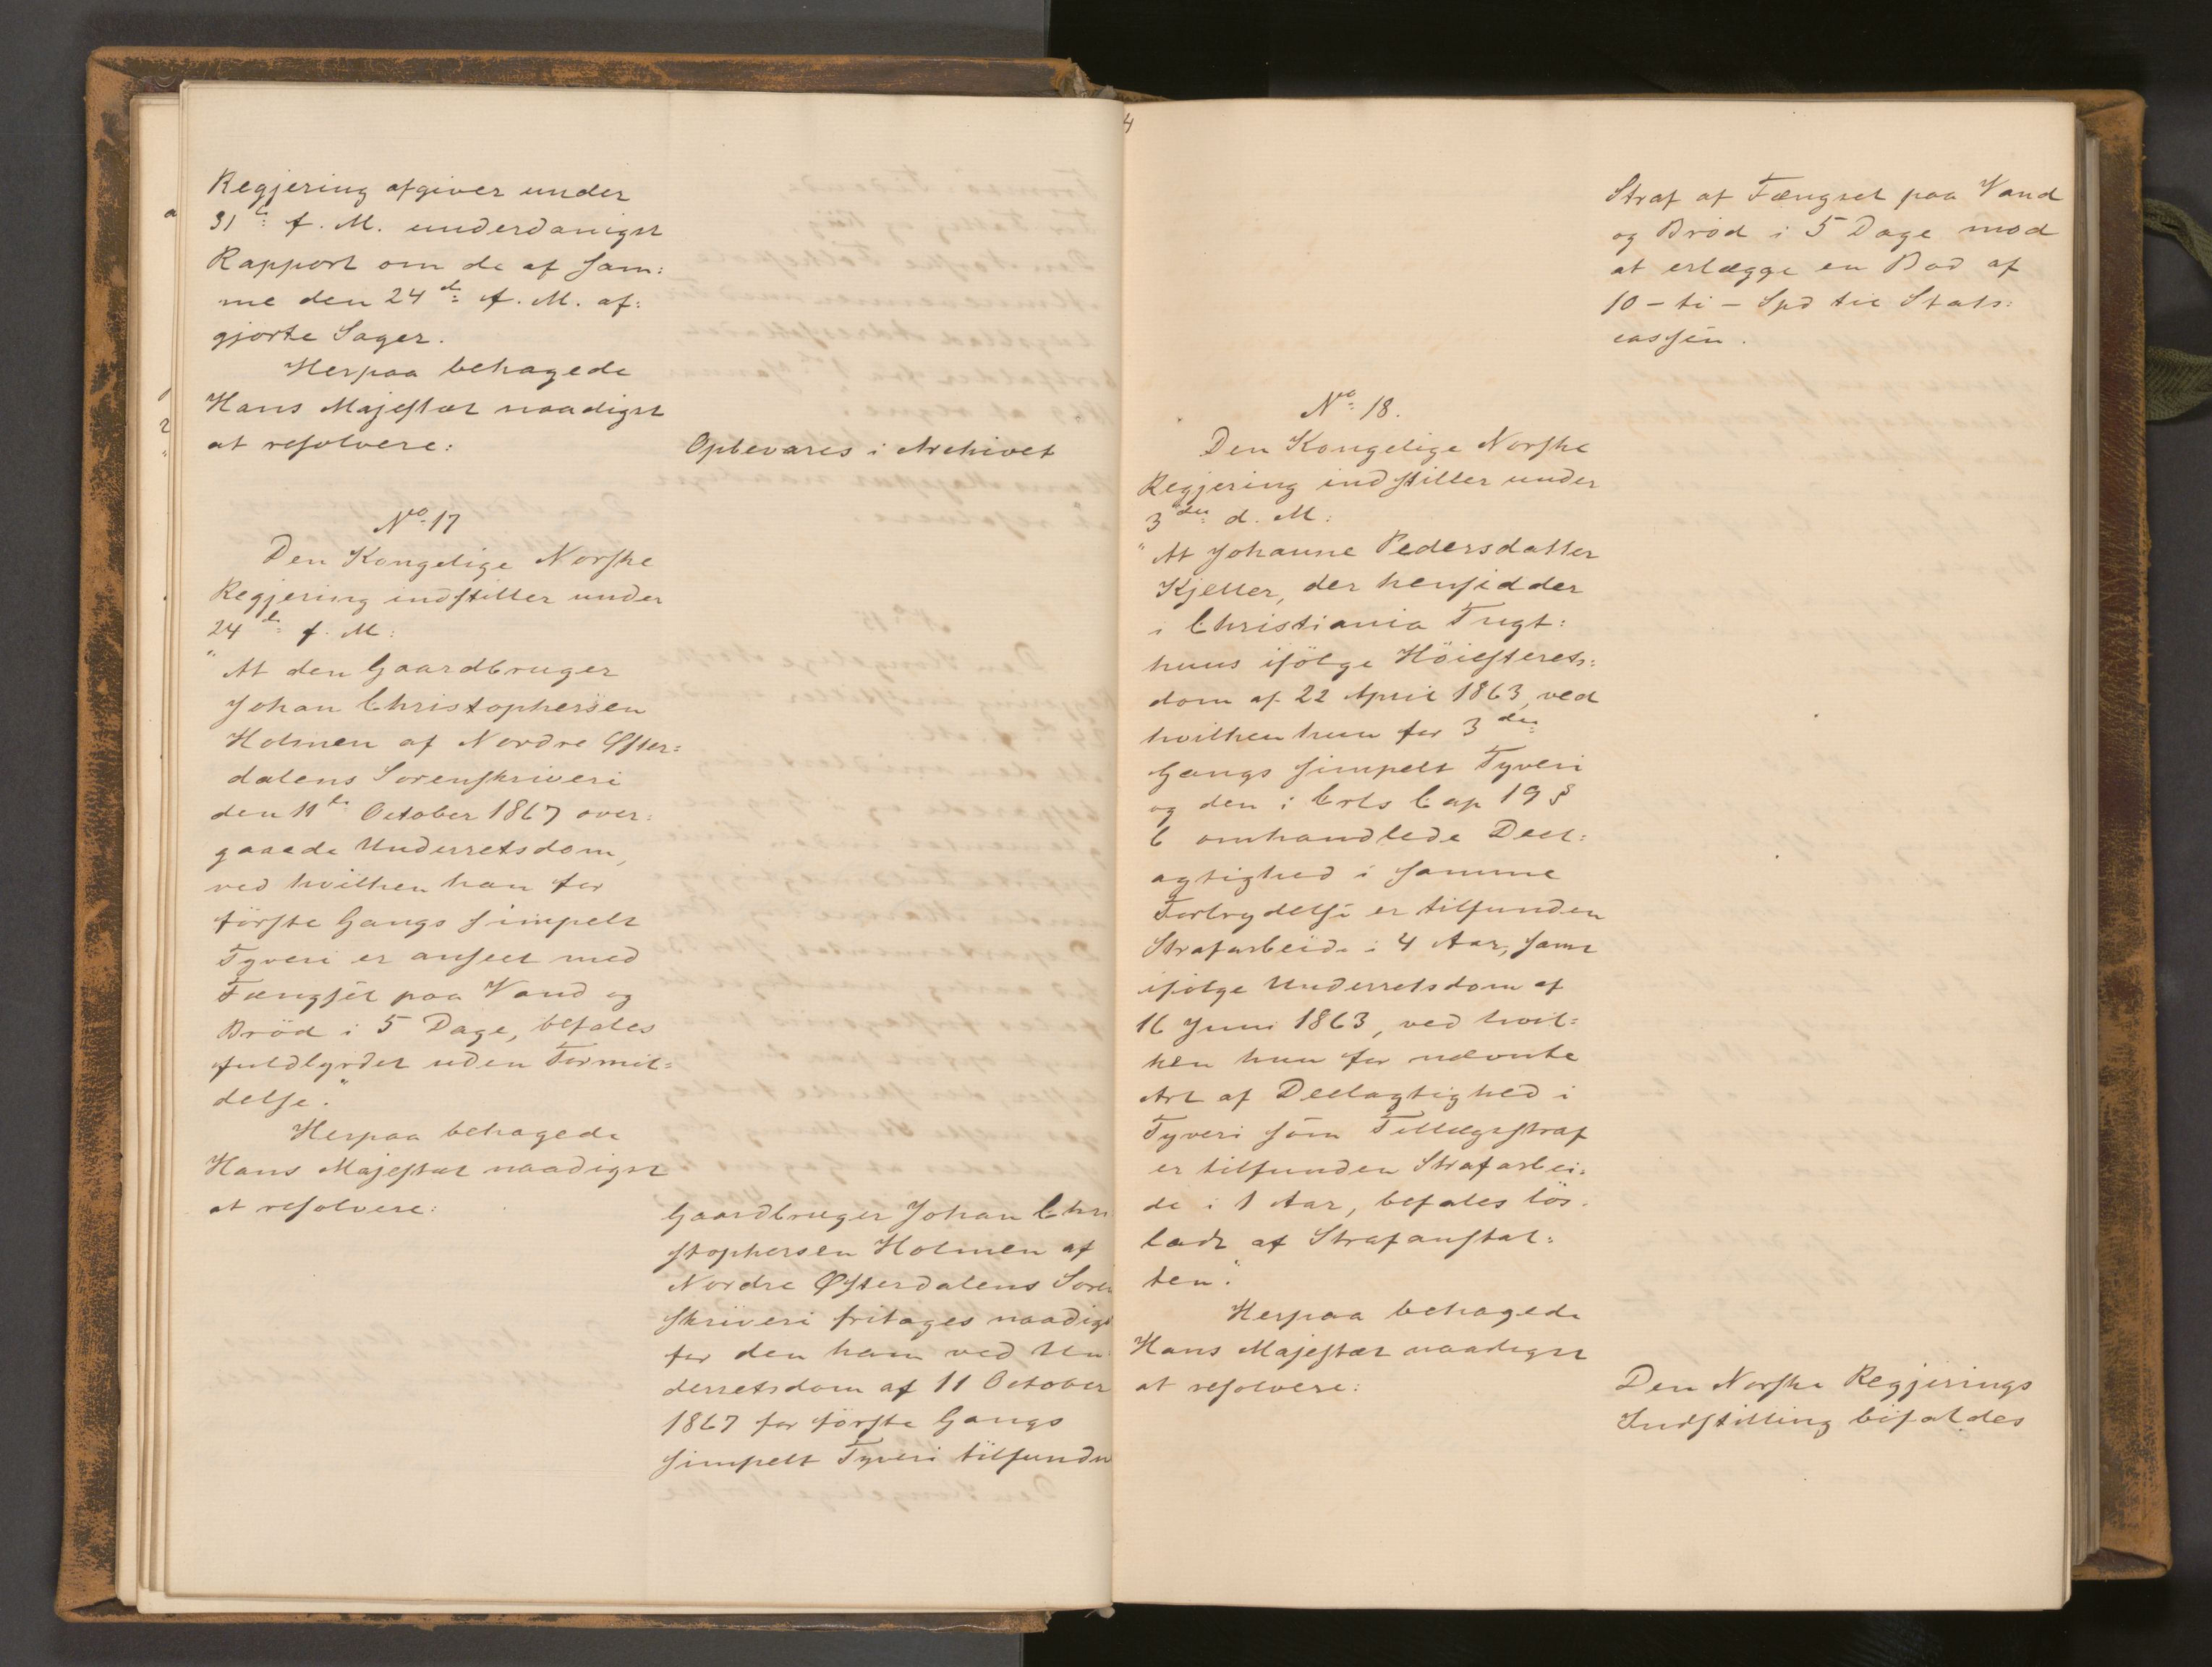 Regjering afgiver under
31te f. M. underdanigst
Rapport om de af sam:
me den 24de f. M. af:
gjorte Sager.
Herpaa behagede
Hans Majestæt naadigst
at resolvere:
Opbevares i Archivet
No 17
Den Kongelige Norske
Regjering indstiller under
24de f. M:
"At den Gaardbruger
Johan Christophersen
Holmen af Nordre Øster:
dalens Sorenskriveri
den 11te October 1867 over:
gaaede Underretsdom,
ved hvilken han for
første Gangs simpelt
Tyveri er anseet med
Fængsel paa Vand og
Brød i 5 Dage, befales
fuldbyrdet uden Formil:
delse."
Herpaa behagede
Hans Majestæt naadigst
at resolvere:
Gaardbruger Johan Chri
stophersen Holmen af
Nordre Østerdalens Soren
skriveri fritages naadigst
for den ham ved Un:
derretsdom af 11 October
1867 for første Gangs
simpelt Tyveri tilfundne
4
Straf af Fængsel paa Vand
og Brød i 5 Dage mod
at erlægge en Bod af
10 - ti - Spd til Stats:
cassen.
No 18.
Den Kongelige Norske
Regjering indstiller under
3die d. M:
"At Johanne Pedersdatter
Kjeller, der hensidder
i Christiania Tugt:
huus ifølge Høiesterets:
dom af 22 April 1863, ved
hvilken hun for 3die
Gangs simpelt Tyveri
og den i Crls Cap 19 §
6 omhandlede Deel:
agtighed i samme
Forbrydelse er tilfunden
Strafarbeide i 4 Aar, samt
ifølge Underretsdom af
16 Juni 1863, ved hvil:
ken hun for nævnte
Art af Deelagtighed i
Tyveri som Tillægsstraf
er tilfunden Strafarbei:
de i 1 Aar, befales løs:
ladt af Strafanstal:
ten."
Herpaa behagede
Hans Majestæt naadigst
at resolvere:
Den Norske Regjerings
Indstilling bifaldes